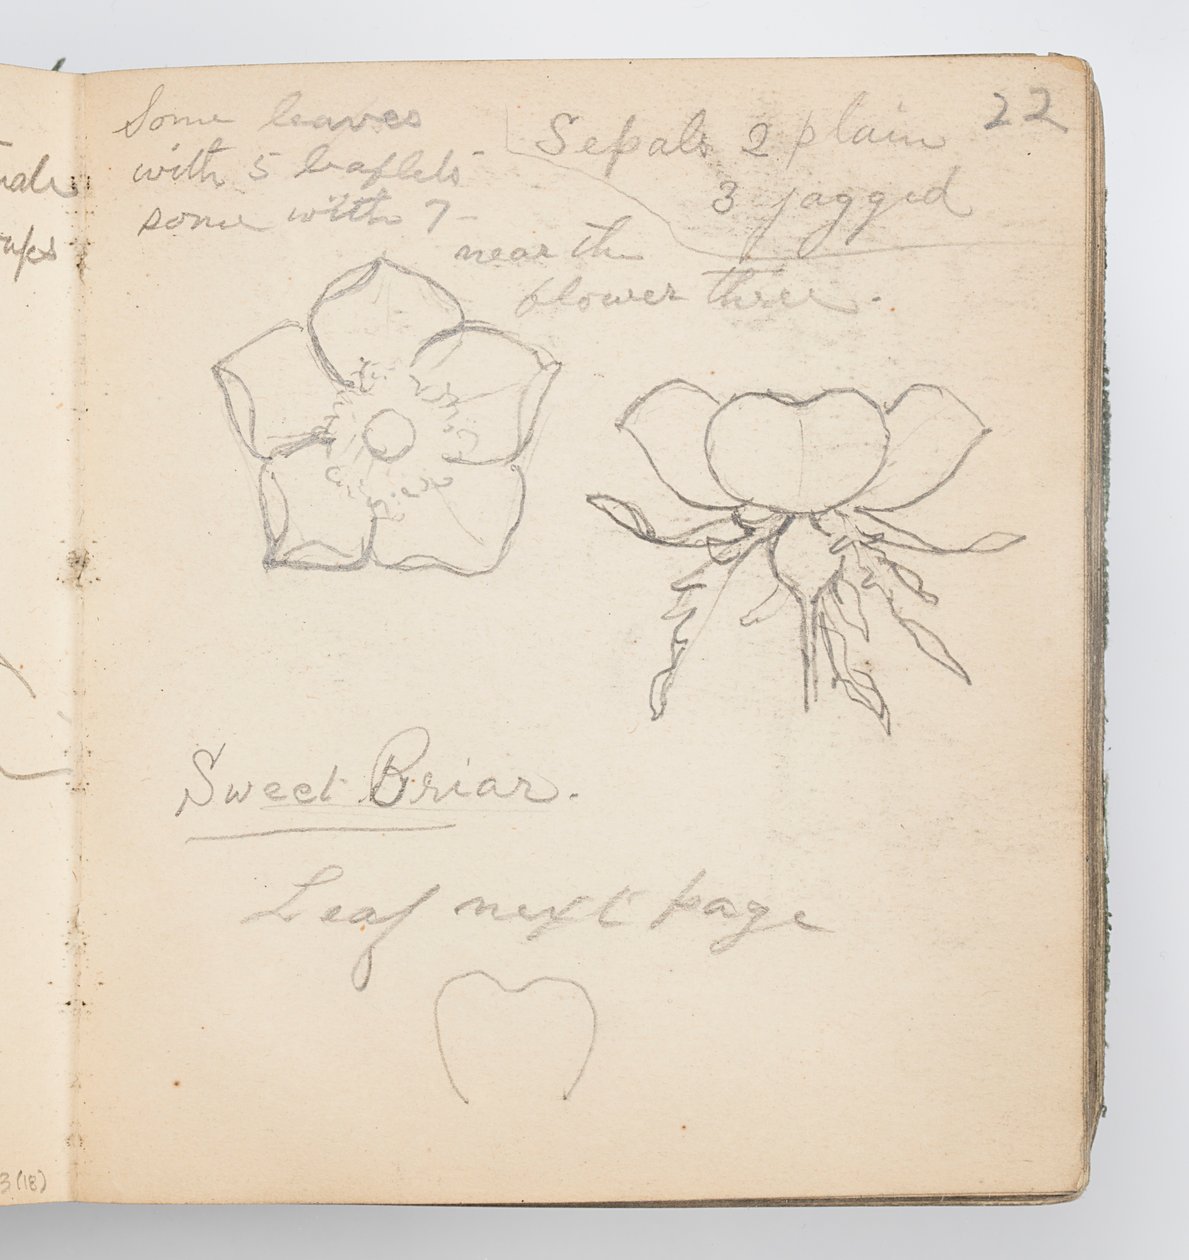 22
Some leaves
with 5 leaflets
some with 7 -
near the
flower three.
Sepals 2 plain
3 jagged
Sweet Briar.
Leaf next page
3(18)